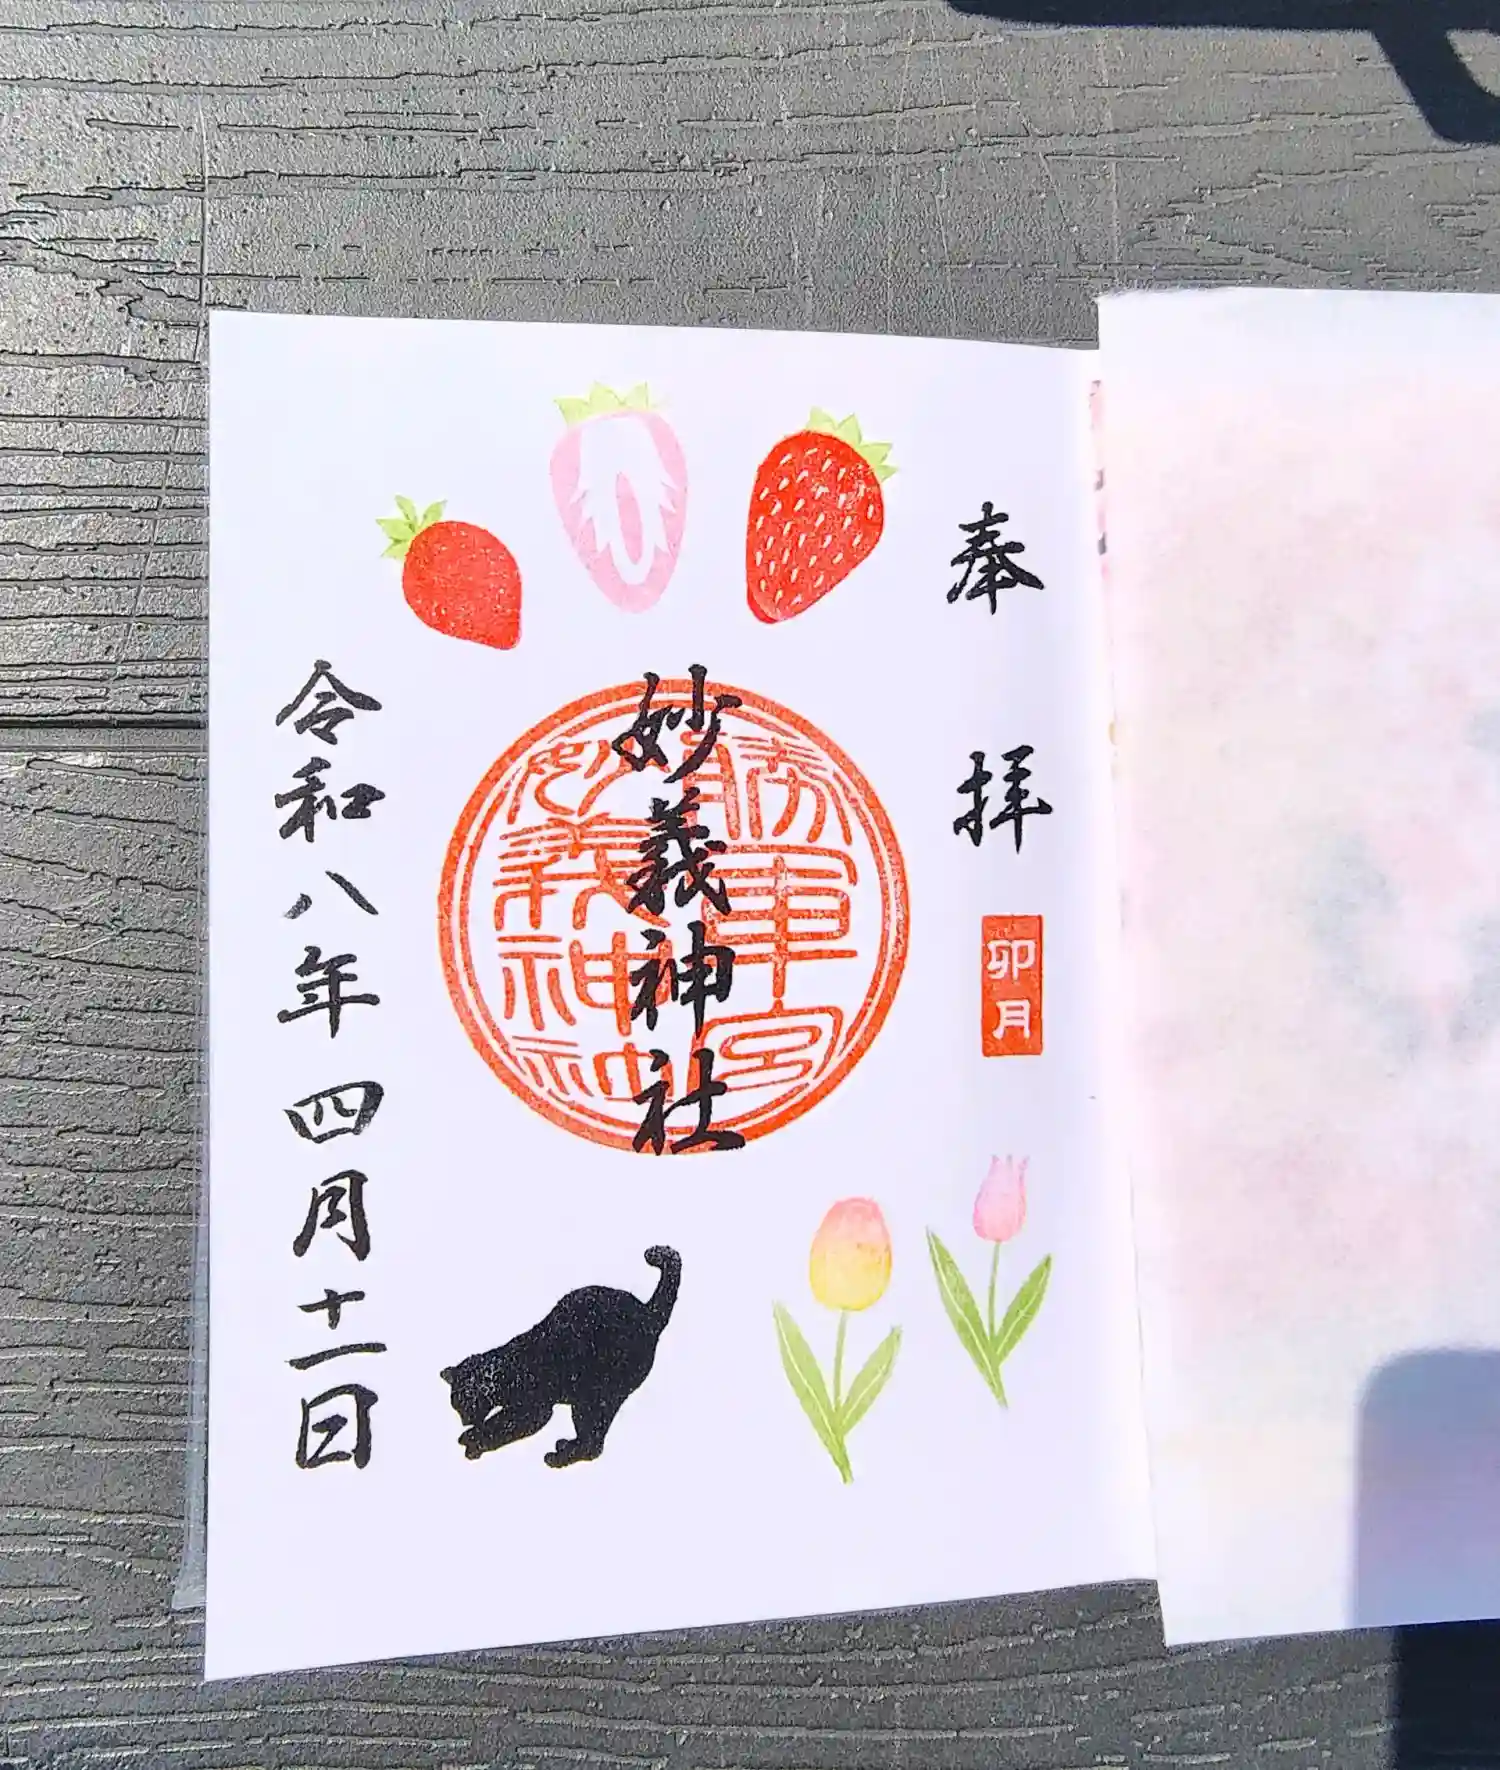 奉拝
卯月
妙義神社
勝軍宮
妙義神社
令和八年四月十一日